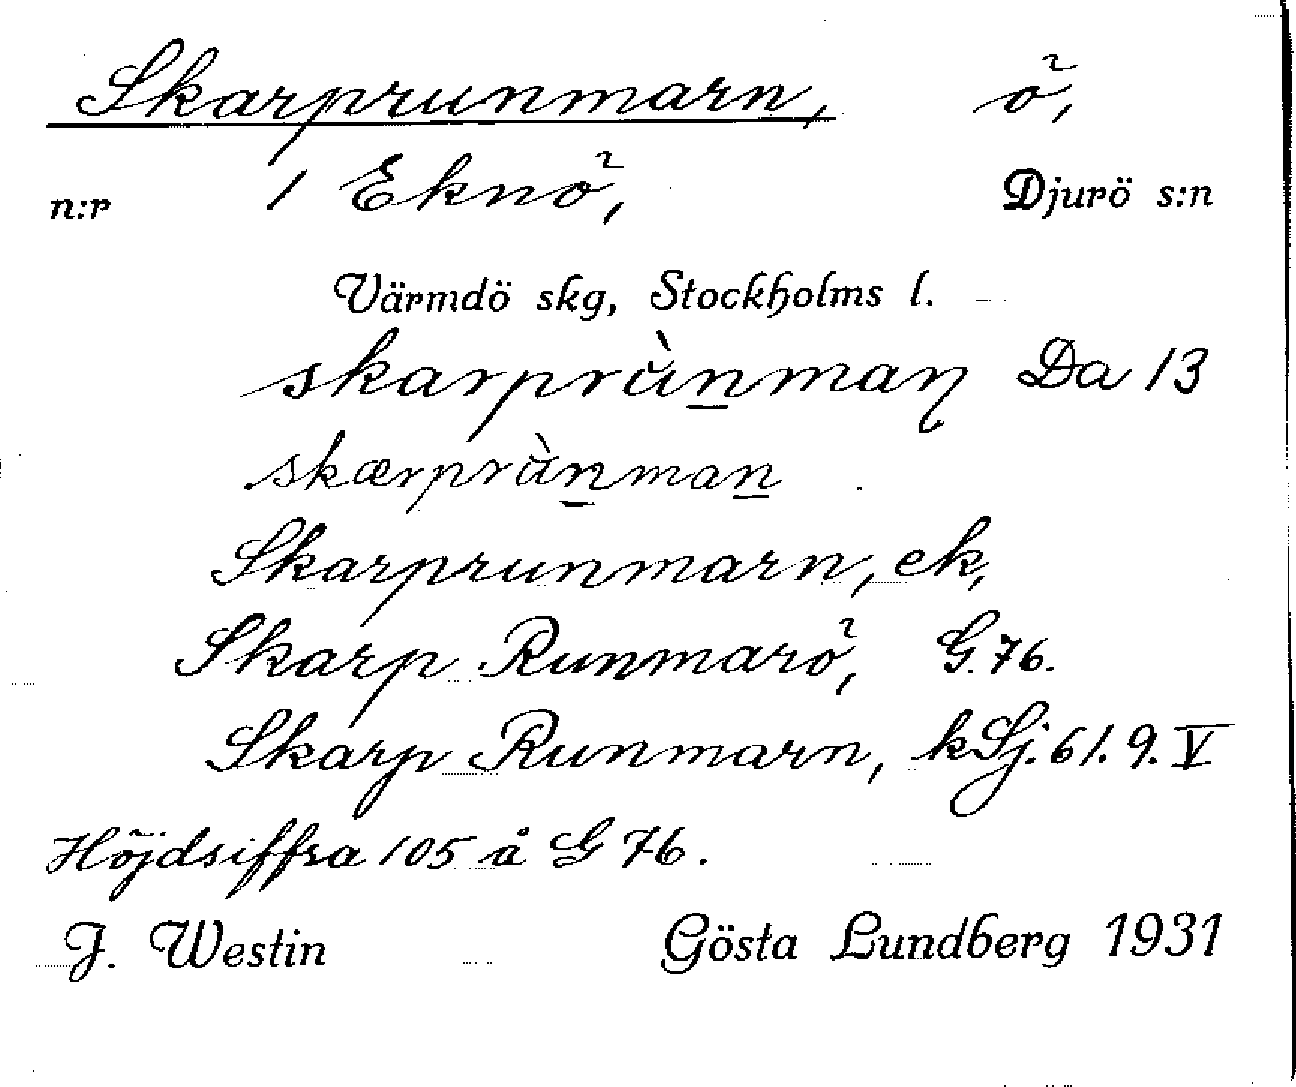 Skarprunmarn, ö,
n:r 1 Eknö, Djurö s:n
Värmdö skg, Stockholms l.
skarprùn̲maꞃ Da 13
skærprùn̲man̲
Skarprunmarn, ek,
Skarp Runmarö, G. 76.
Skarp Runmarn, kSj. 61. 9. V
Höjdsiffra 105 å G 76.
J. Westin Gösta Lundberg 1931